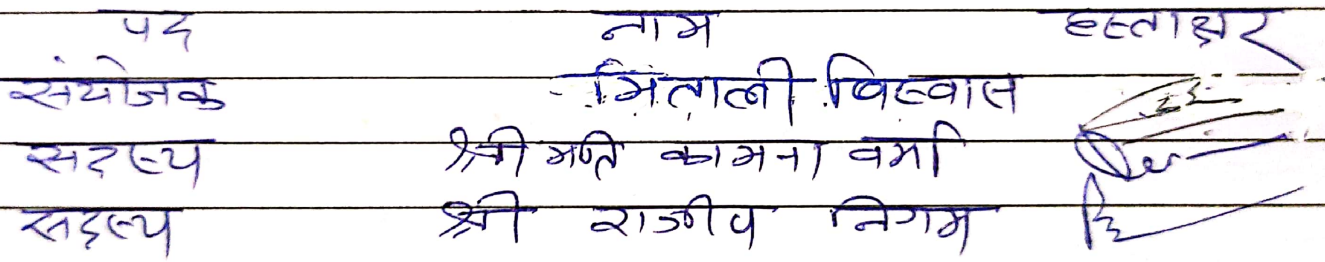 पद नाम हस्ताक्षर
संयोजक मिताली विस्वास
सदस्य श्रीमति कामना वर्मा
सदस्य श्री राजीव निगम